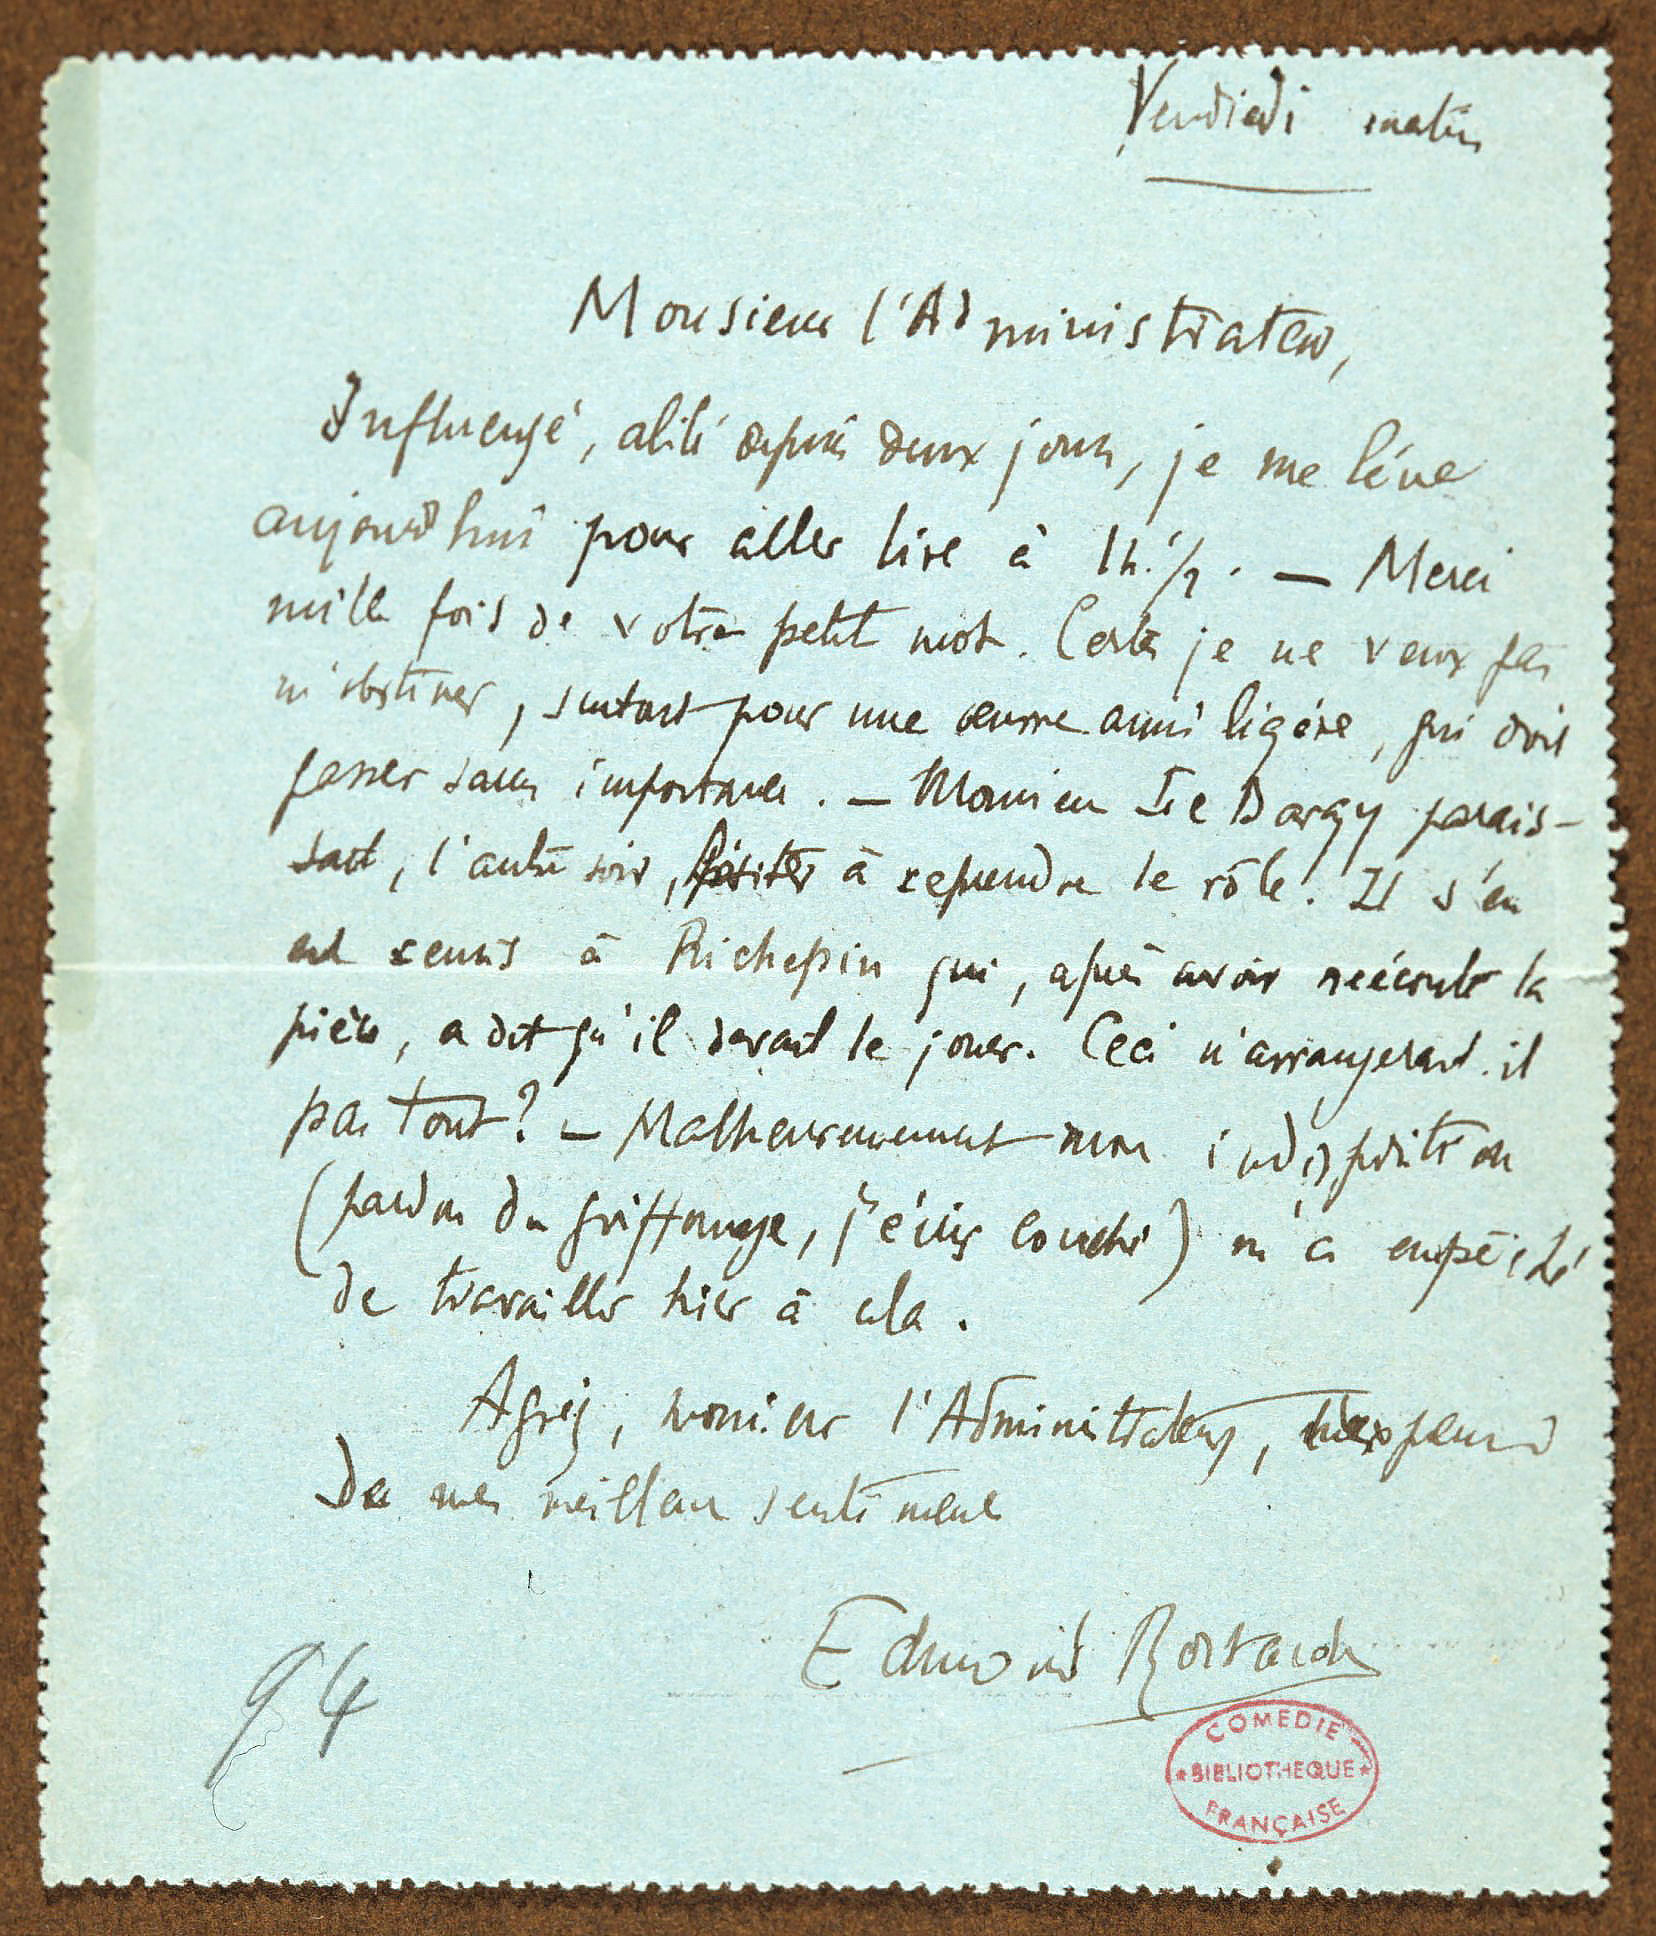 Vendredi matin
Monsieur l'Administrateur,
Influenzé, alité depuis deux jours, je me lève
aujourd'hui pour aller lire à 1h.1/2. — Merci
mille fois de votre petit mot. Certes je ne veux pas
m'obstiner, surtout pour une œuvre aussi légère, qui doit
passer sans importance. — Monsieur Le Bargy parais-
sait, l'autre soir, hésiter à reprendre le rôle. Il s'en
est remis à Richepin qui, après avoir réécouté la
pièce, a dit qu'il devait le jouer. Ceci n'arrangerait-il
pas tout? — Malheureusement mon indisposition
(pardon du griffonnage, j'écris couché) m'a empêché
de travailler hier à cela.
Agréez, monsieur l'Administrateur, l'expression
de mes meilleurs sentiments
Edmond Rostand
94
COMEDIE
*BIBLIOTHEQUE*
FRANÇAISE